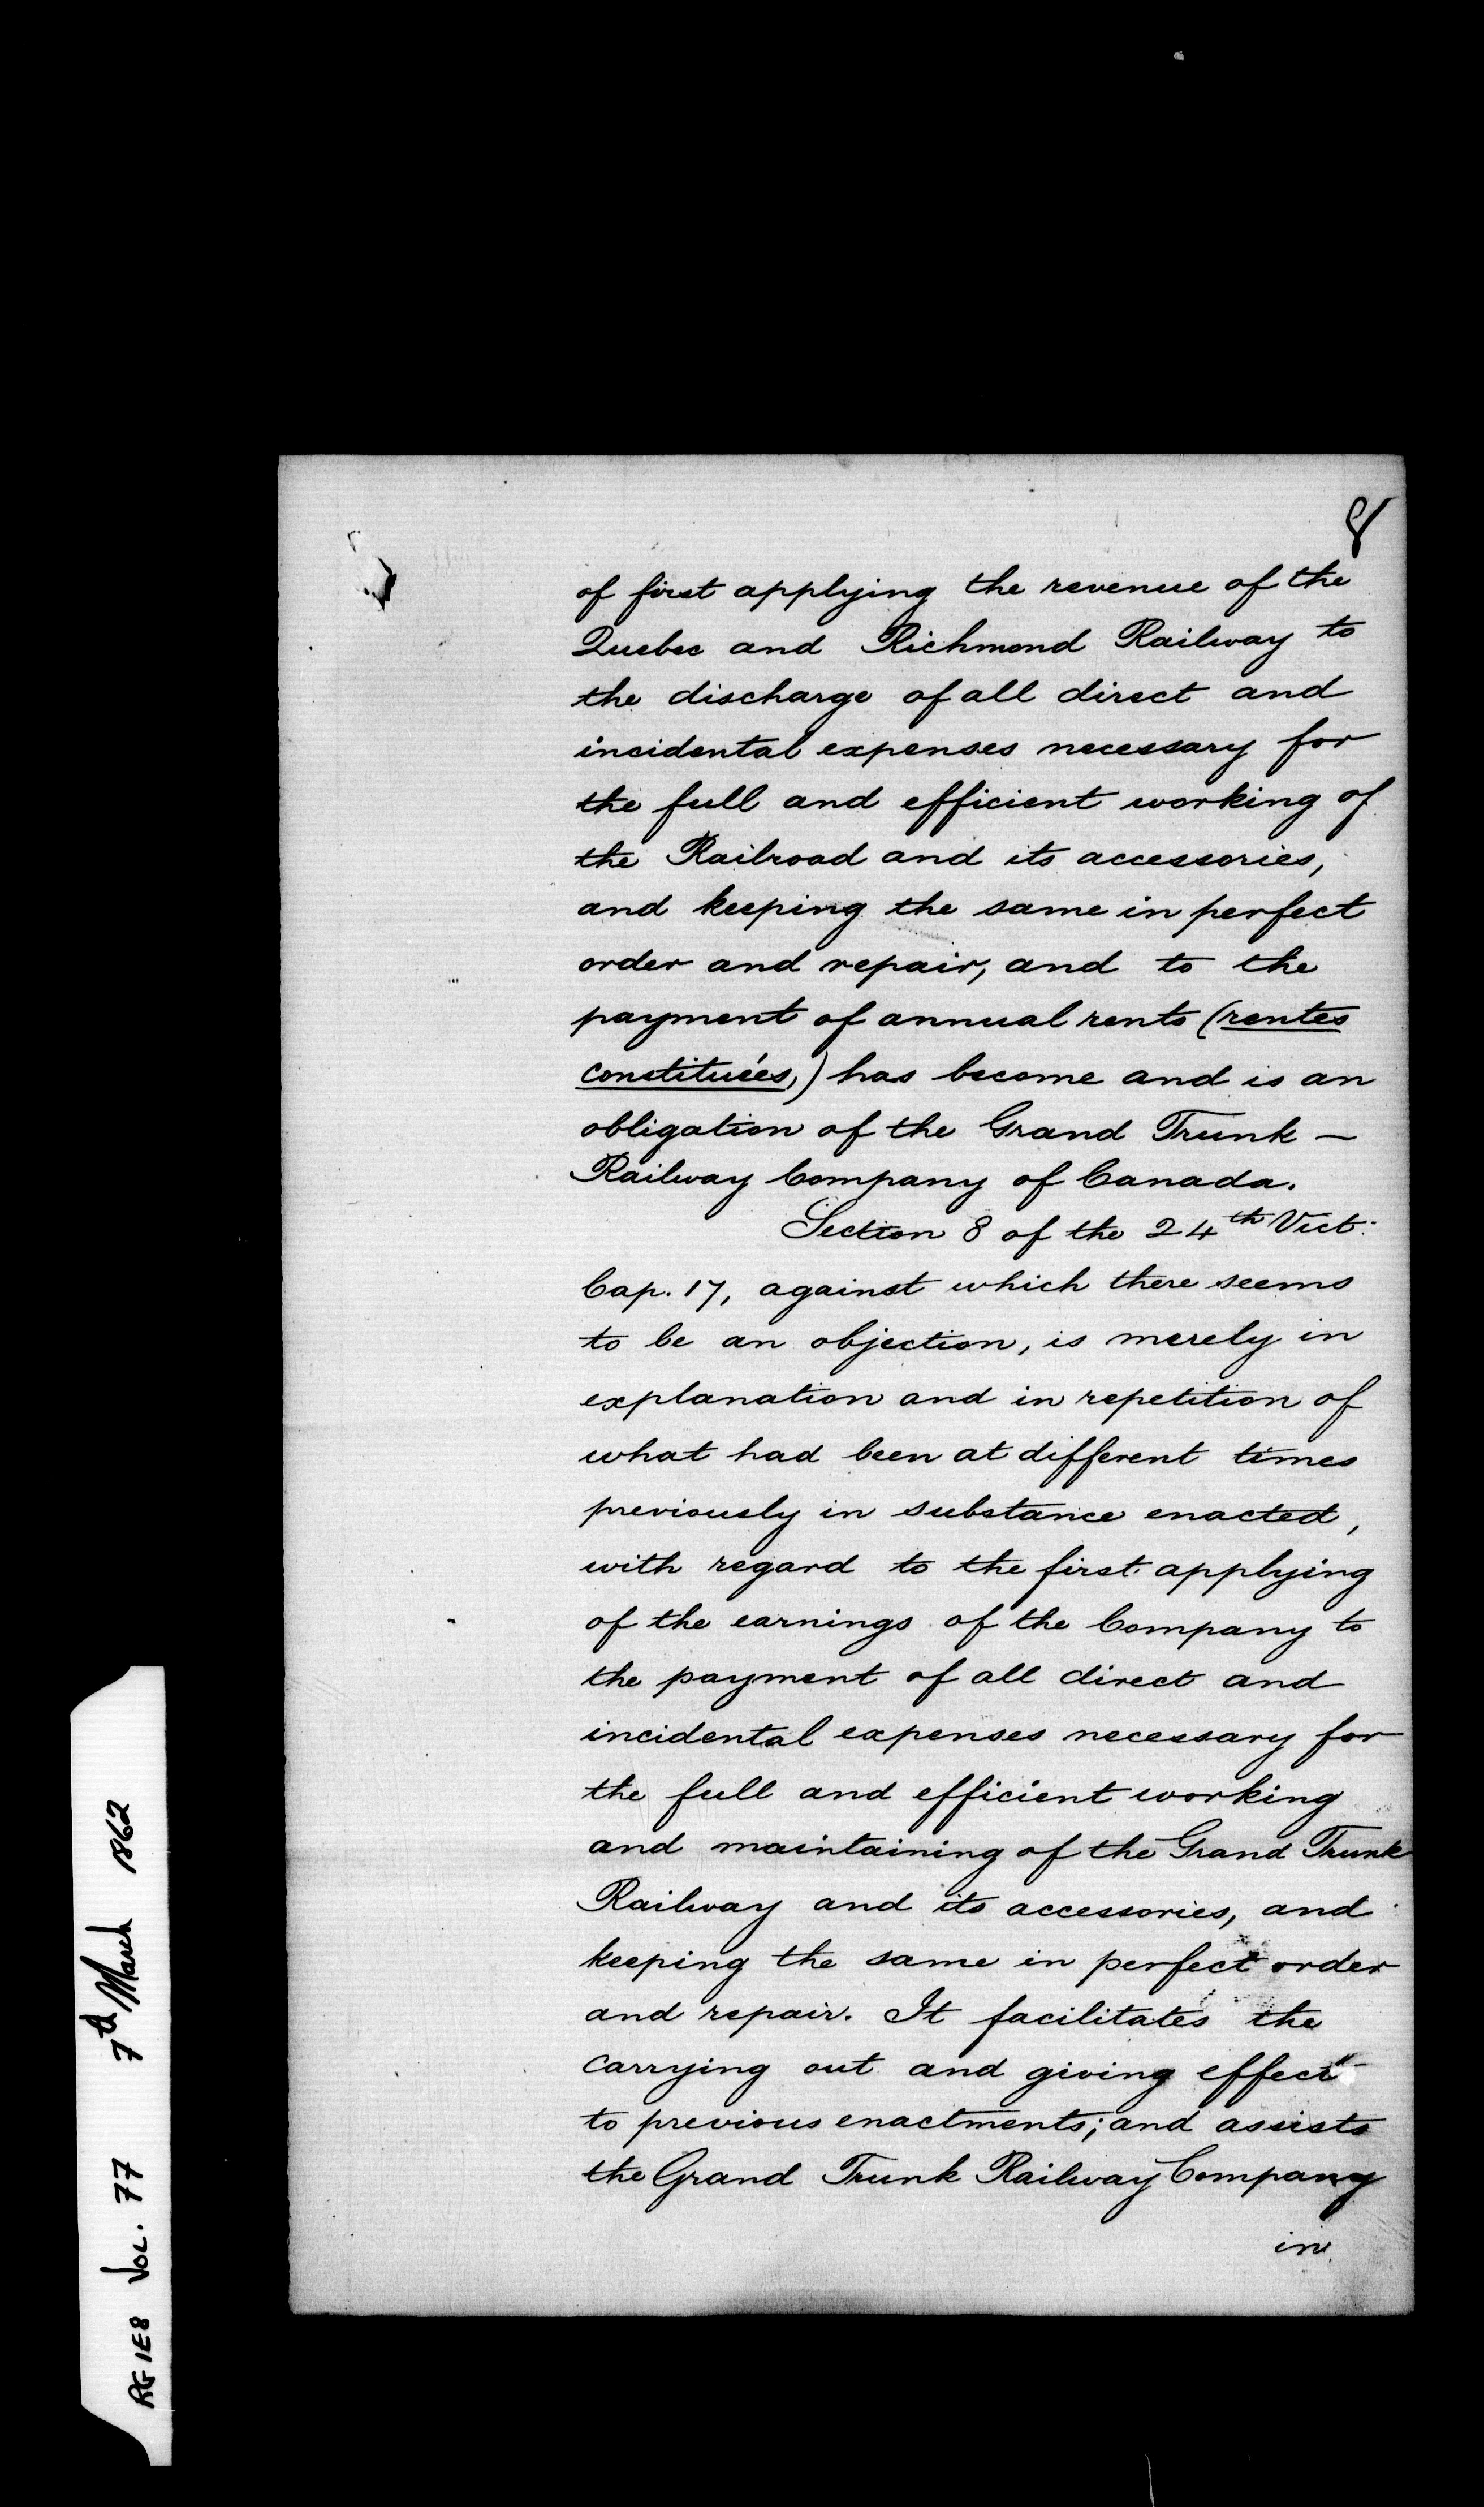 8
of first applying the revenue of the
Quebec and Richmond Railway to
the discharge of all direct and
incidental expenses necessary for
the full and efficient working of
the Railroad and its accessories,
and keeping the same in perfect
order and repair, and to the
payment of annual rents (rentes
constituées,) has become and is an
obligation of the Grand Trunk —
Railway Company of Canada.
Section 8 of the 24th Vict:
Cap. 17, against which there seems
to be an objection, is merely in
explanation and in repetition of
what had been at different times
previously in substance enacted,
with regard to the first applying
of the earnings of the Company to
the payment of all direct and
incidental expenses necessary for
the full and efficient working
and maintaining of the Grand Trunk
Railway and its accessories, and
keeping the same in perfect order
and repair. It facilitates the
carrying out and giving effect
to previous enactments; and assists
the Grand Trunk Railway Company
in
RG 1E8 VOL. 77 7th March 1862